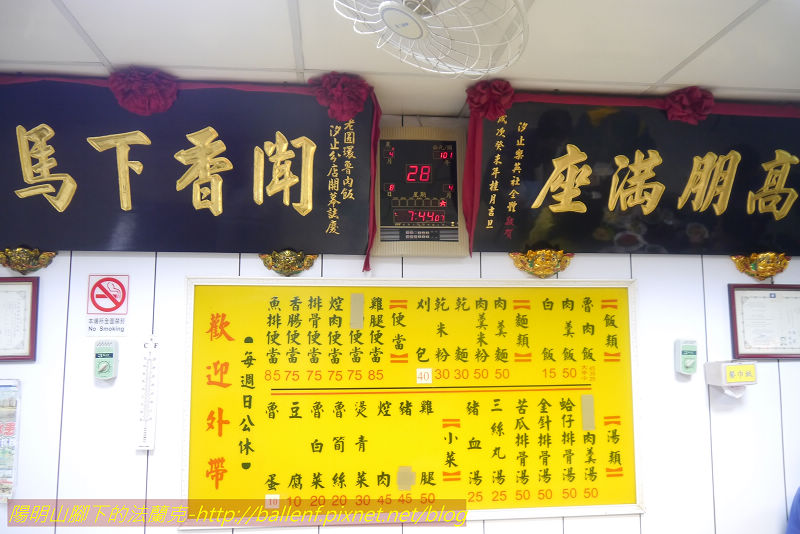 高朋滿座
汐止樂英社全體敬賀
歲次癸未年桂月吉旦
聞香下馬
老圓環魯肉飯
汐止分店開幕誌慶
農
4
月
8
日
星期
六
101
28
4
月
7:44
07
本場所全面禁菸
No Smoking
C
F
餐巾紙
【飯類】
魯肉飯
肉羹飯 50
白飯 15
【麵類】
肉羹麵 50
肉羹米粉 50
乾麵 30
乾米粉 30
刈包 40
【便當】
雞腿便當 85
便當 75
焢肉便當 75
排骨便當 75
香腸便當 75
魚排便當 85
【湯類】
肉羹湯 50
蛤仔排骨湯 50
金針排骨湯 50
苦瓜排骨湯 50
三絲丸湯 25
豬血湯 25
【小菜】
雞腿 50
豬 45
焢肉 45
燙青菜 30
魯筍絲 20
魯白菜 20
豆腐 10
魯蛋 10
●每週日公休●
歡迎外帶
陽明山腳下的法蘭克-http://ballenf.pixnet.net/blog